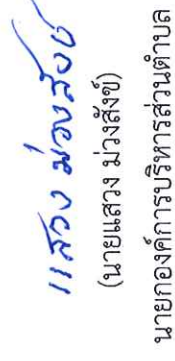 แสวง ม่วงสังข์
(นายแสวง ม่วงสังข์)
นายกองค์การบริหารส่วนตำบล